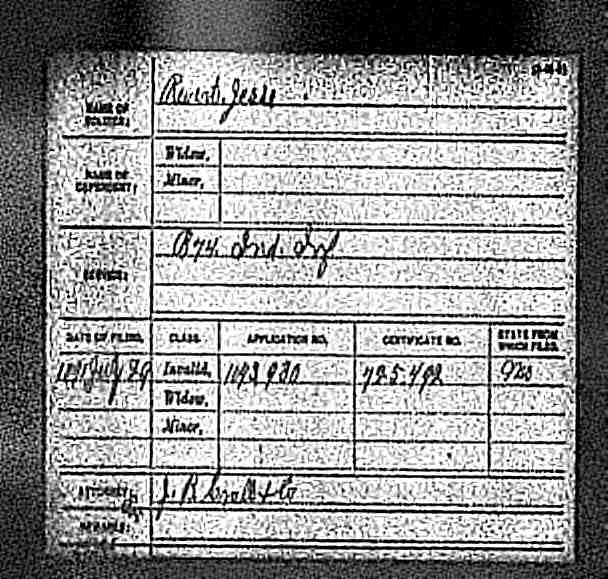 NAME OF SOLDIER: Jesse
NAME OF DEPENDENT: Widow,
Minor,
SERVICE: B 74. Ind. Inf
DATE OF FILING. CLASS. APPLICATION NO. CERTIFICATE NO. STATE FROM WHICH FILED.
July 29 Invalid, 1193 930 725.492
Widow,
Minor,
ATTORNEY: J. B. & Co
REMARKS: